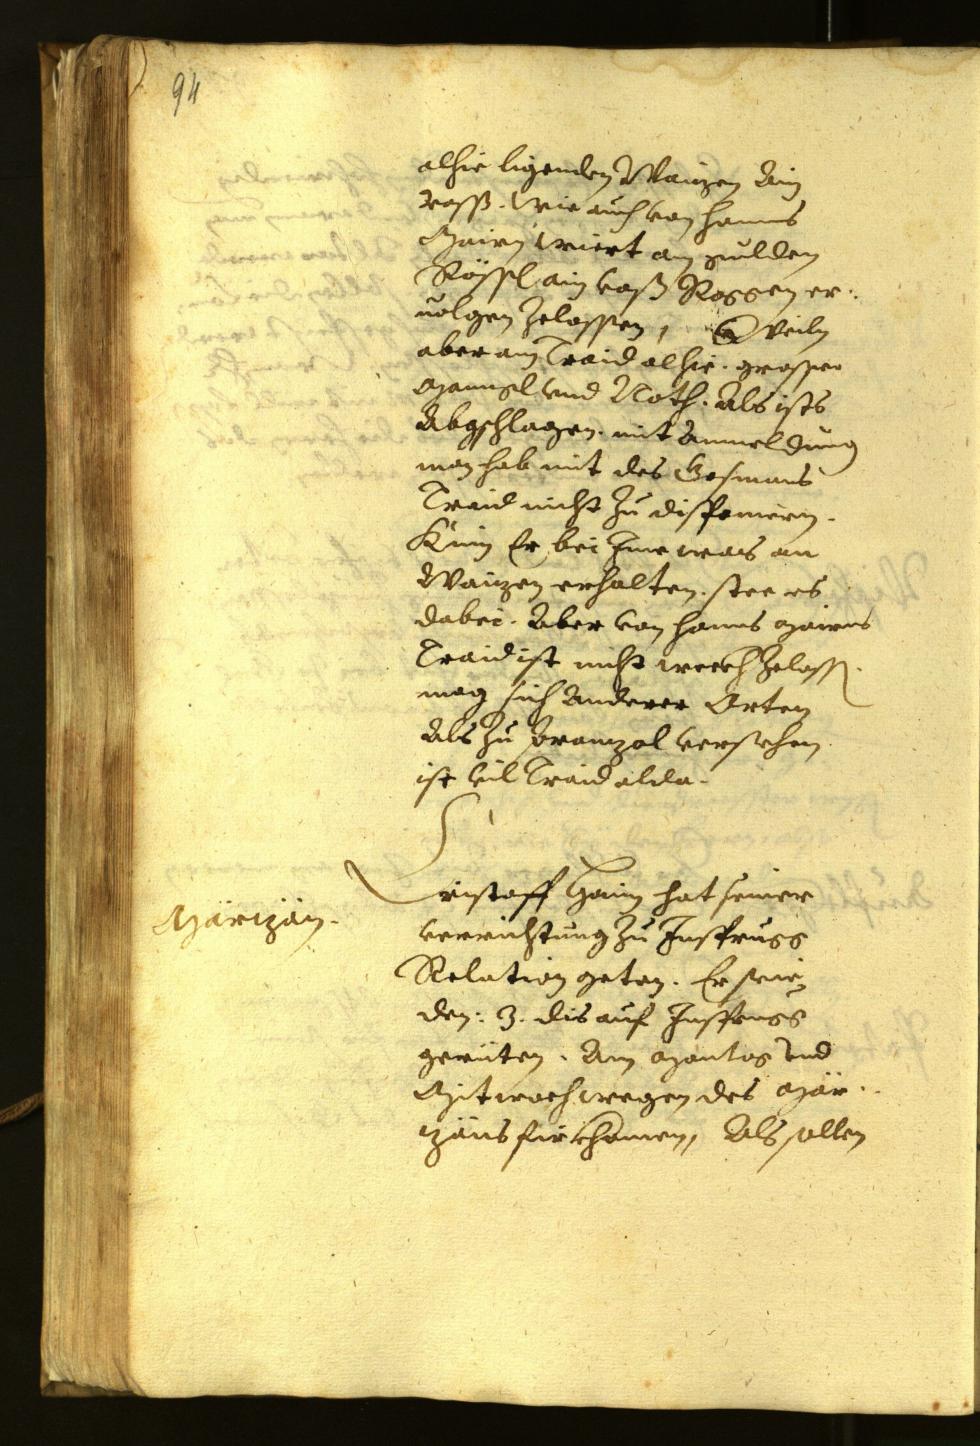 94
alhie ligenden Waizen ain
vass. Wie auch von Hanns
Mairn wiert am gulden
Rössl ain vass Roggen er-
uolgen zelassen, Weiln
aber am Traid alhie grosser
Manngl vnd Noth. Als ists
Abgschlagen. mit Anmeldung
man hab mit des Gosmans
Traid nicht zu disponiern.
Künn Er bei Ime was an
Waizen erhalten. stee es
dabei. Aber von Hanns Mairns
Traid ist nicht weckh zelassen
mög sich Anderer Orten
Als zu Pranzol versehen
ist vil Traid alda.
Märtzän.
Cristoff Hain hat seiner
verrichtung zu Insprugg
Relation geton. Er seie
den: 3. dis auf Insprugg
geriten. Am Montag vnd
Mitwoch wegen des Mär-
tzäns fürkhomen, Als sollen